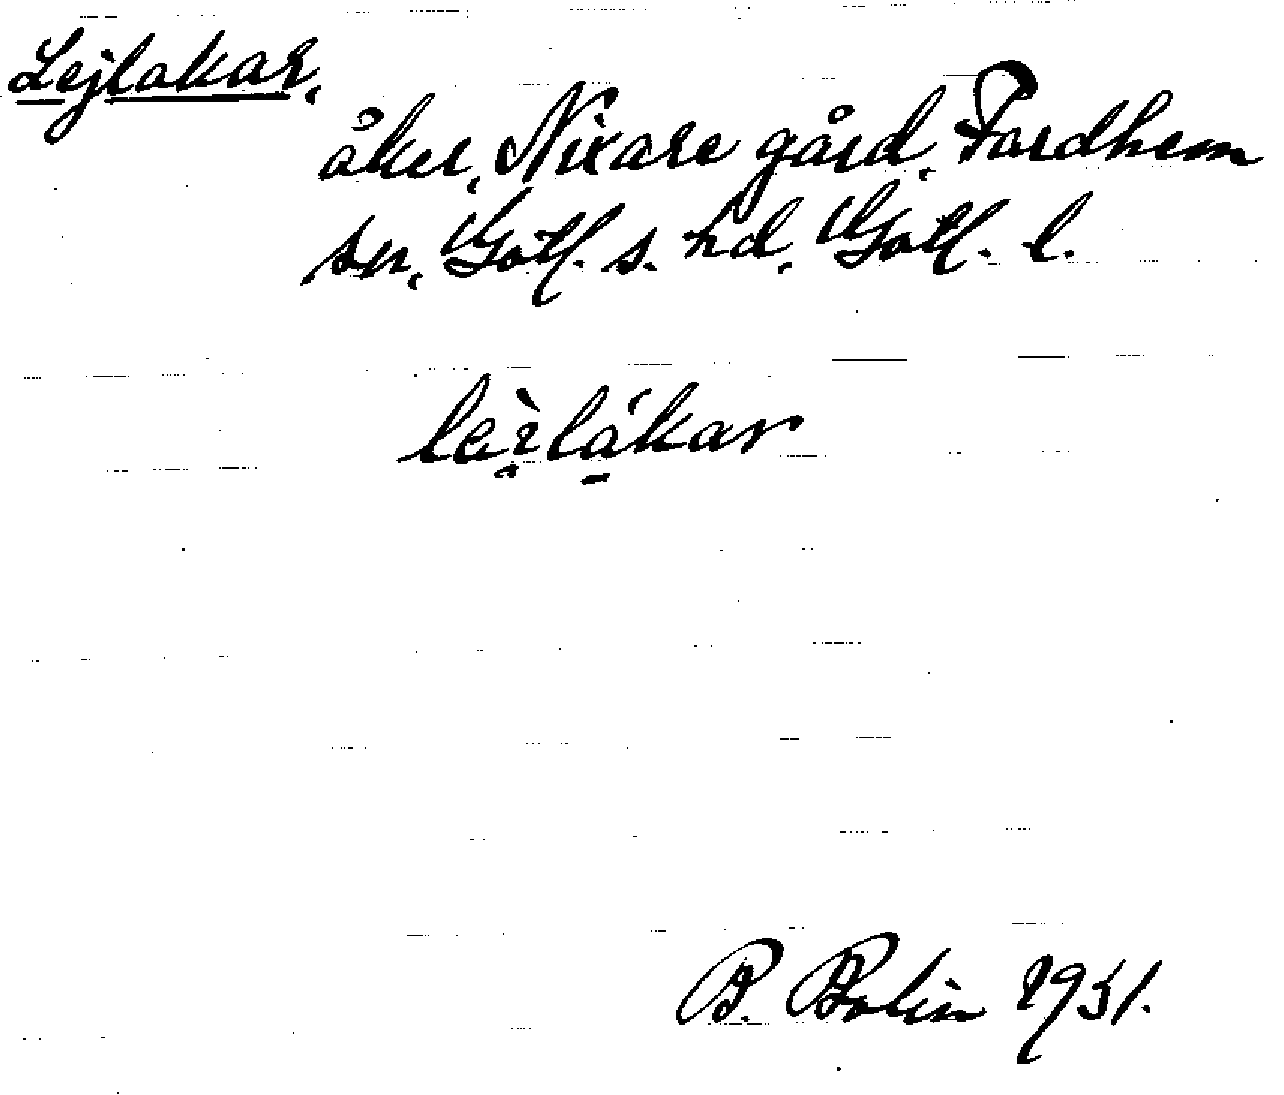 Lejlakar,
åker, Nixare gård, Fardhem
sn, Gotl. s. hd, Gotl. l.
lèɪlákar
B. Bolin 1931.